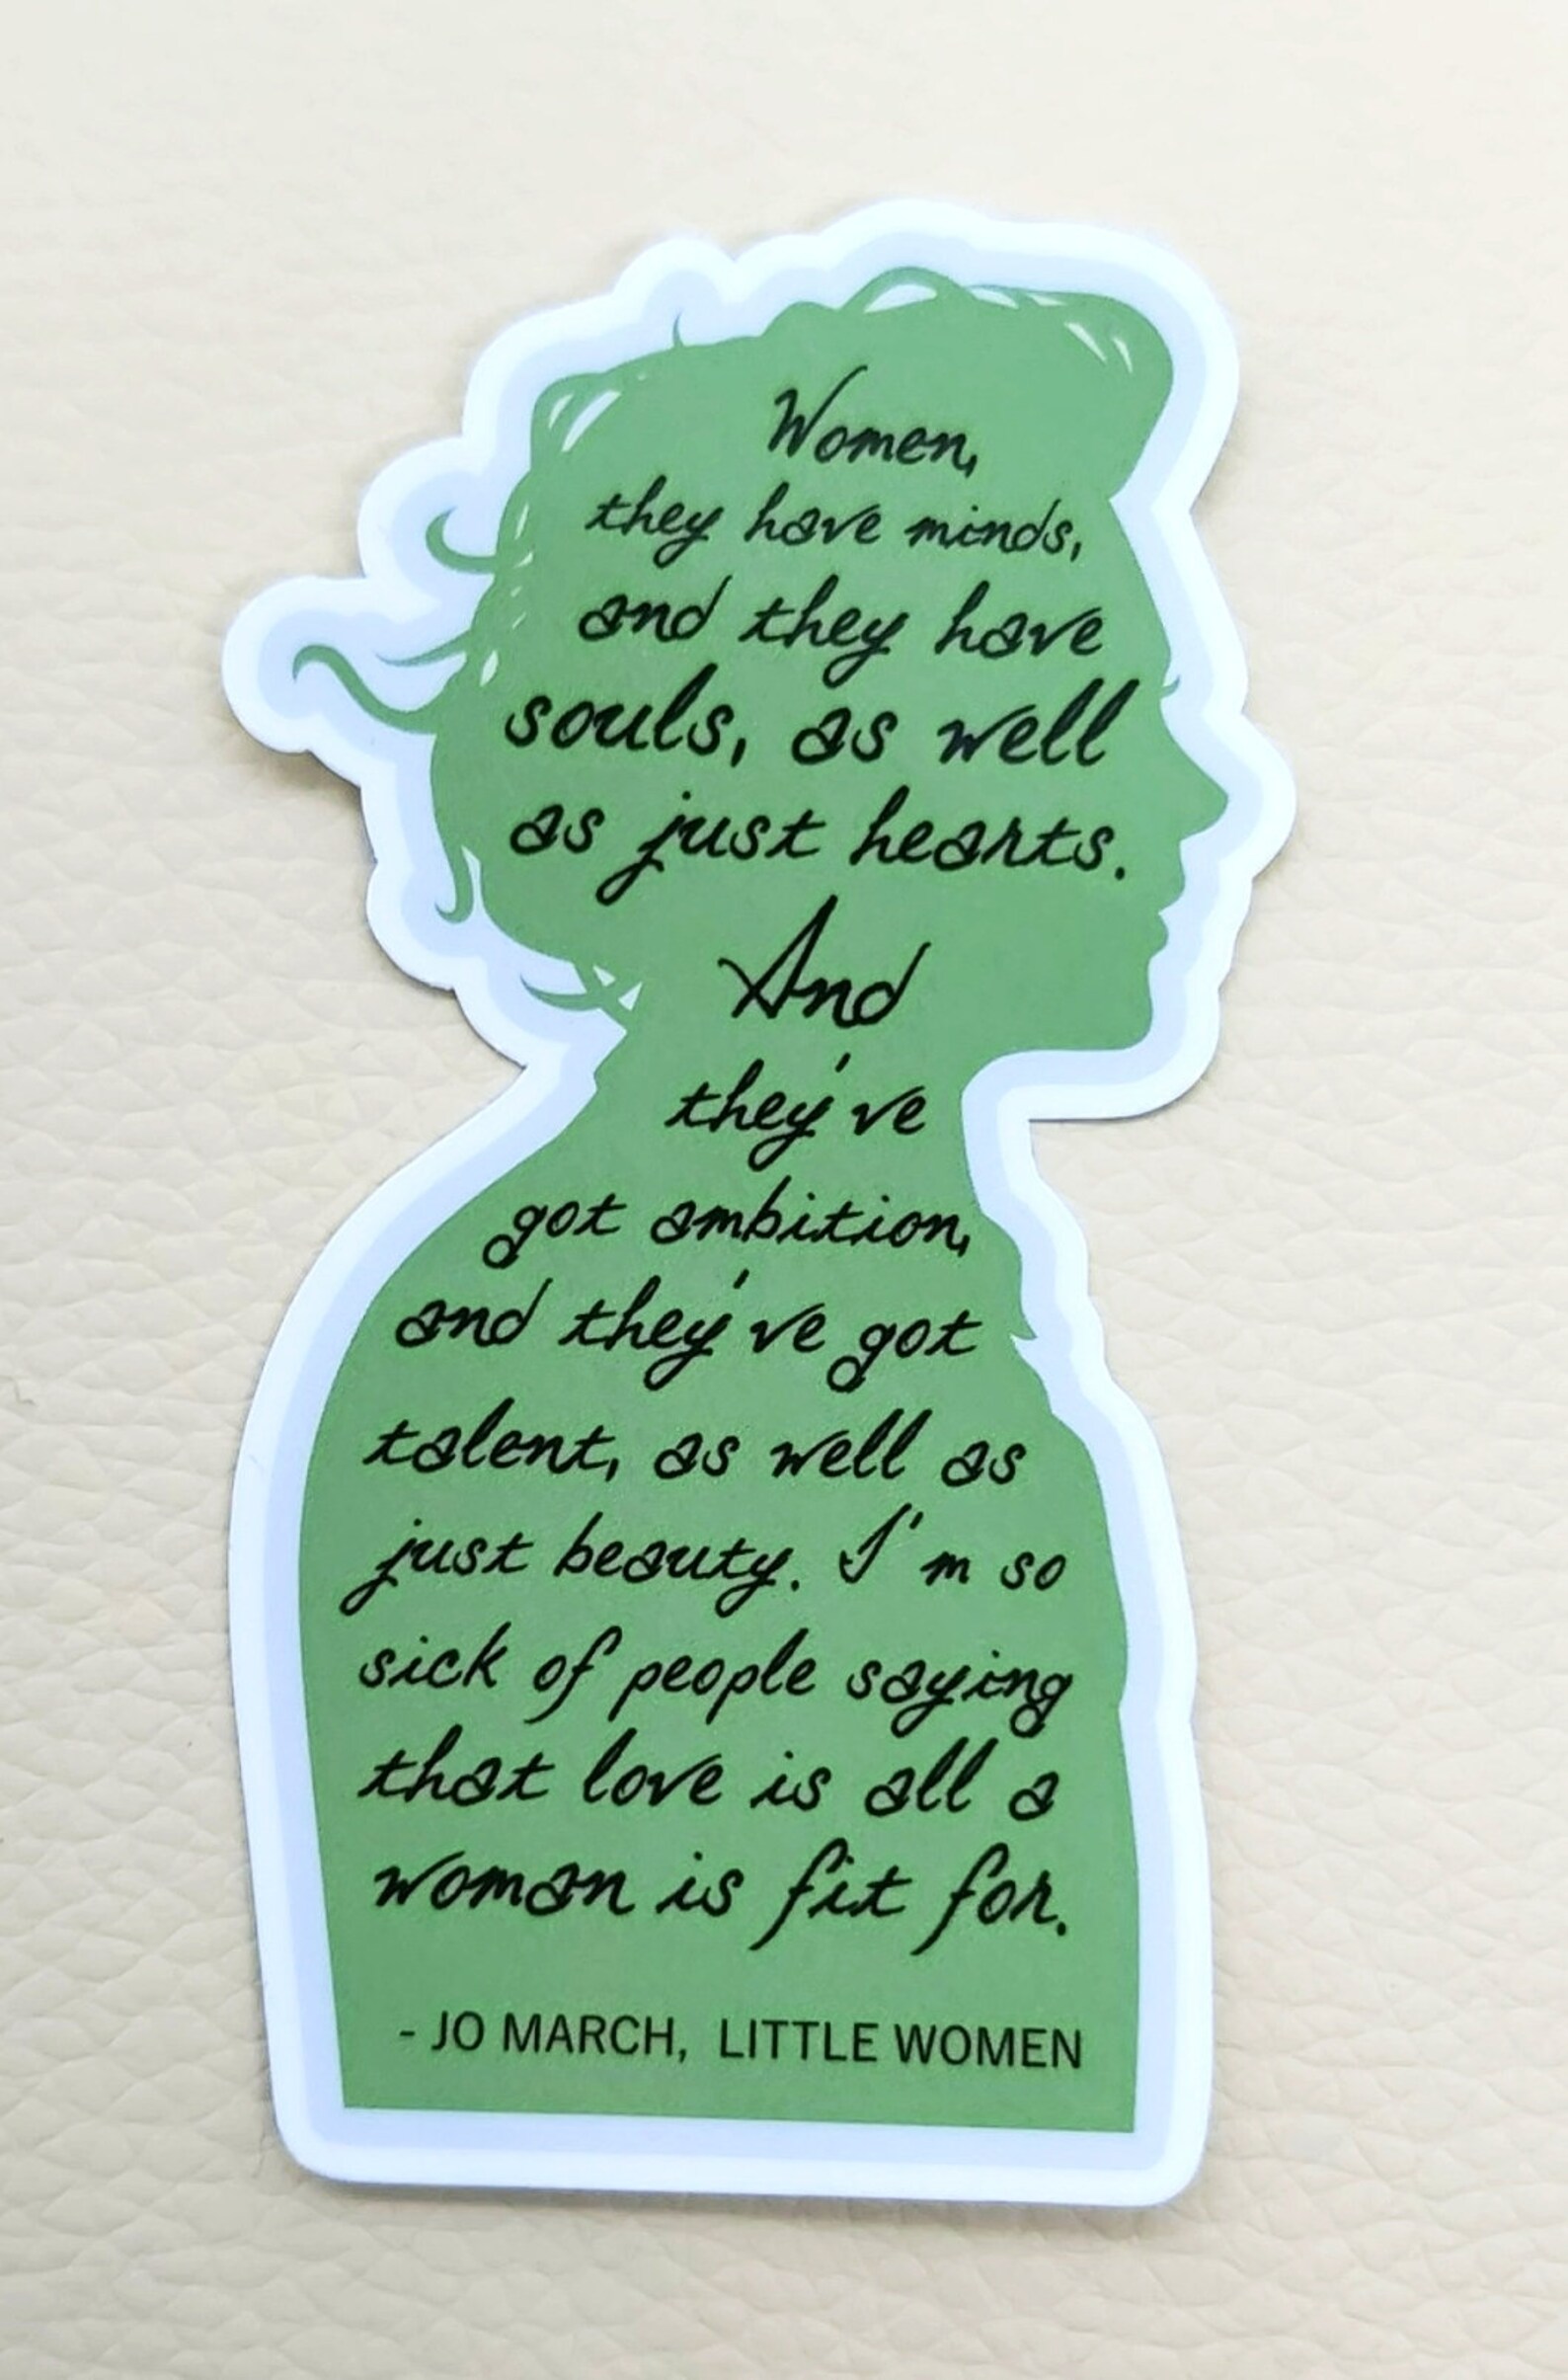 Women,
they have minds,
and they have
souls, as well
as just hearts.
And
they've
got ambition,
and they've got
talent, as well as
just beauty. I'm so
sick of people saying
that love is all a
woman is fit for.
- JO MARCH, LITTLE WOMEN